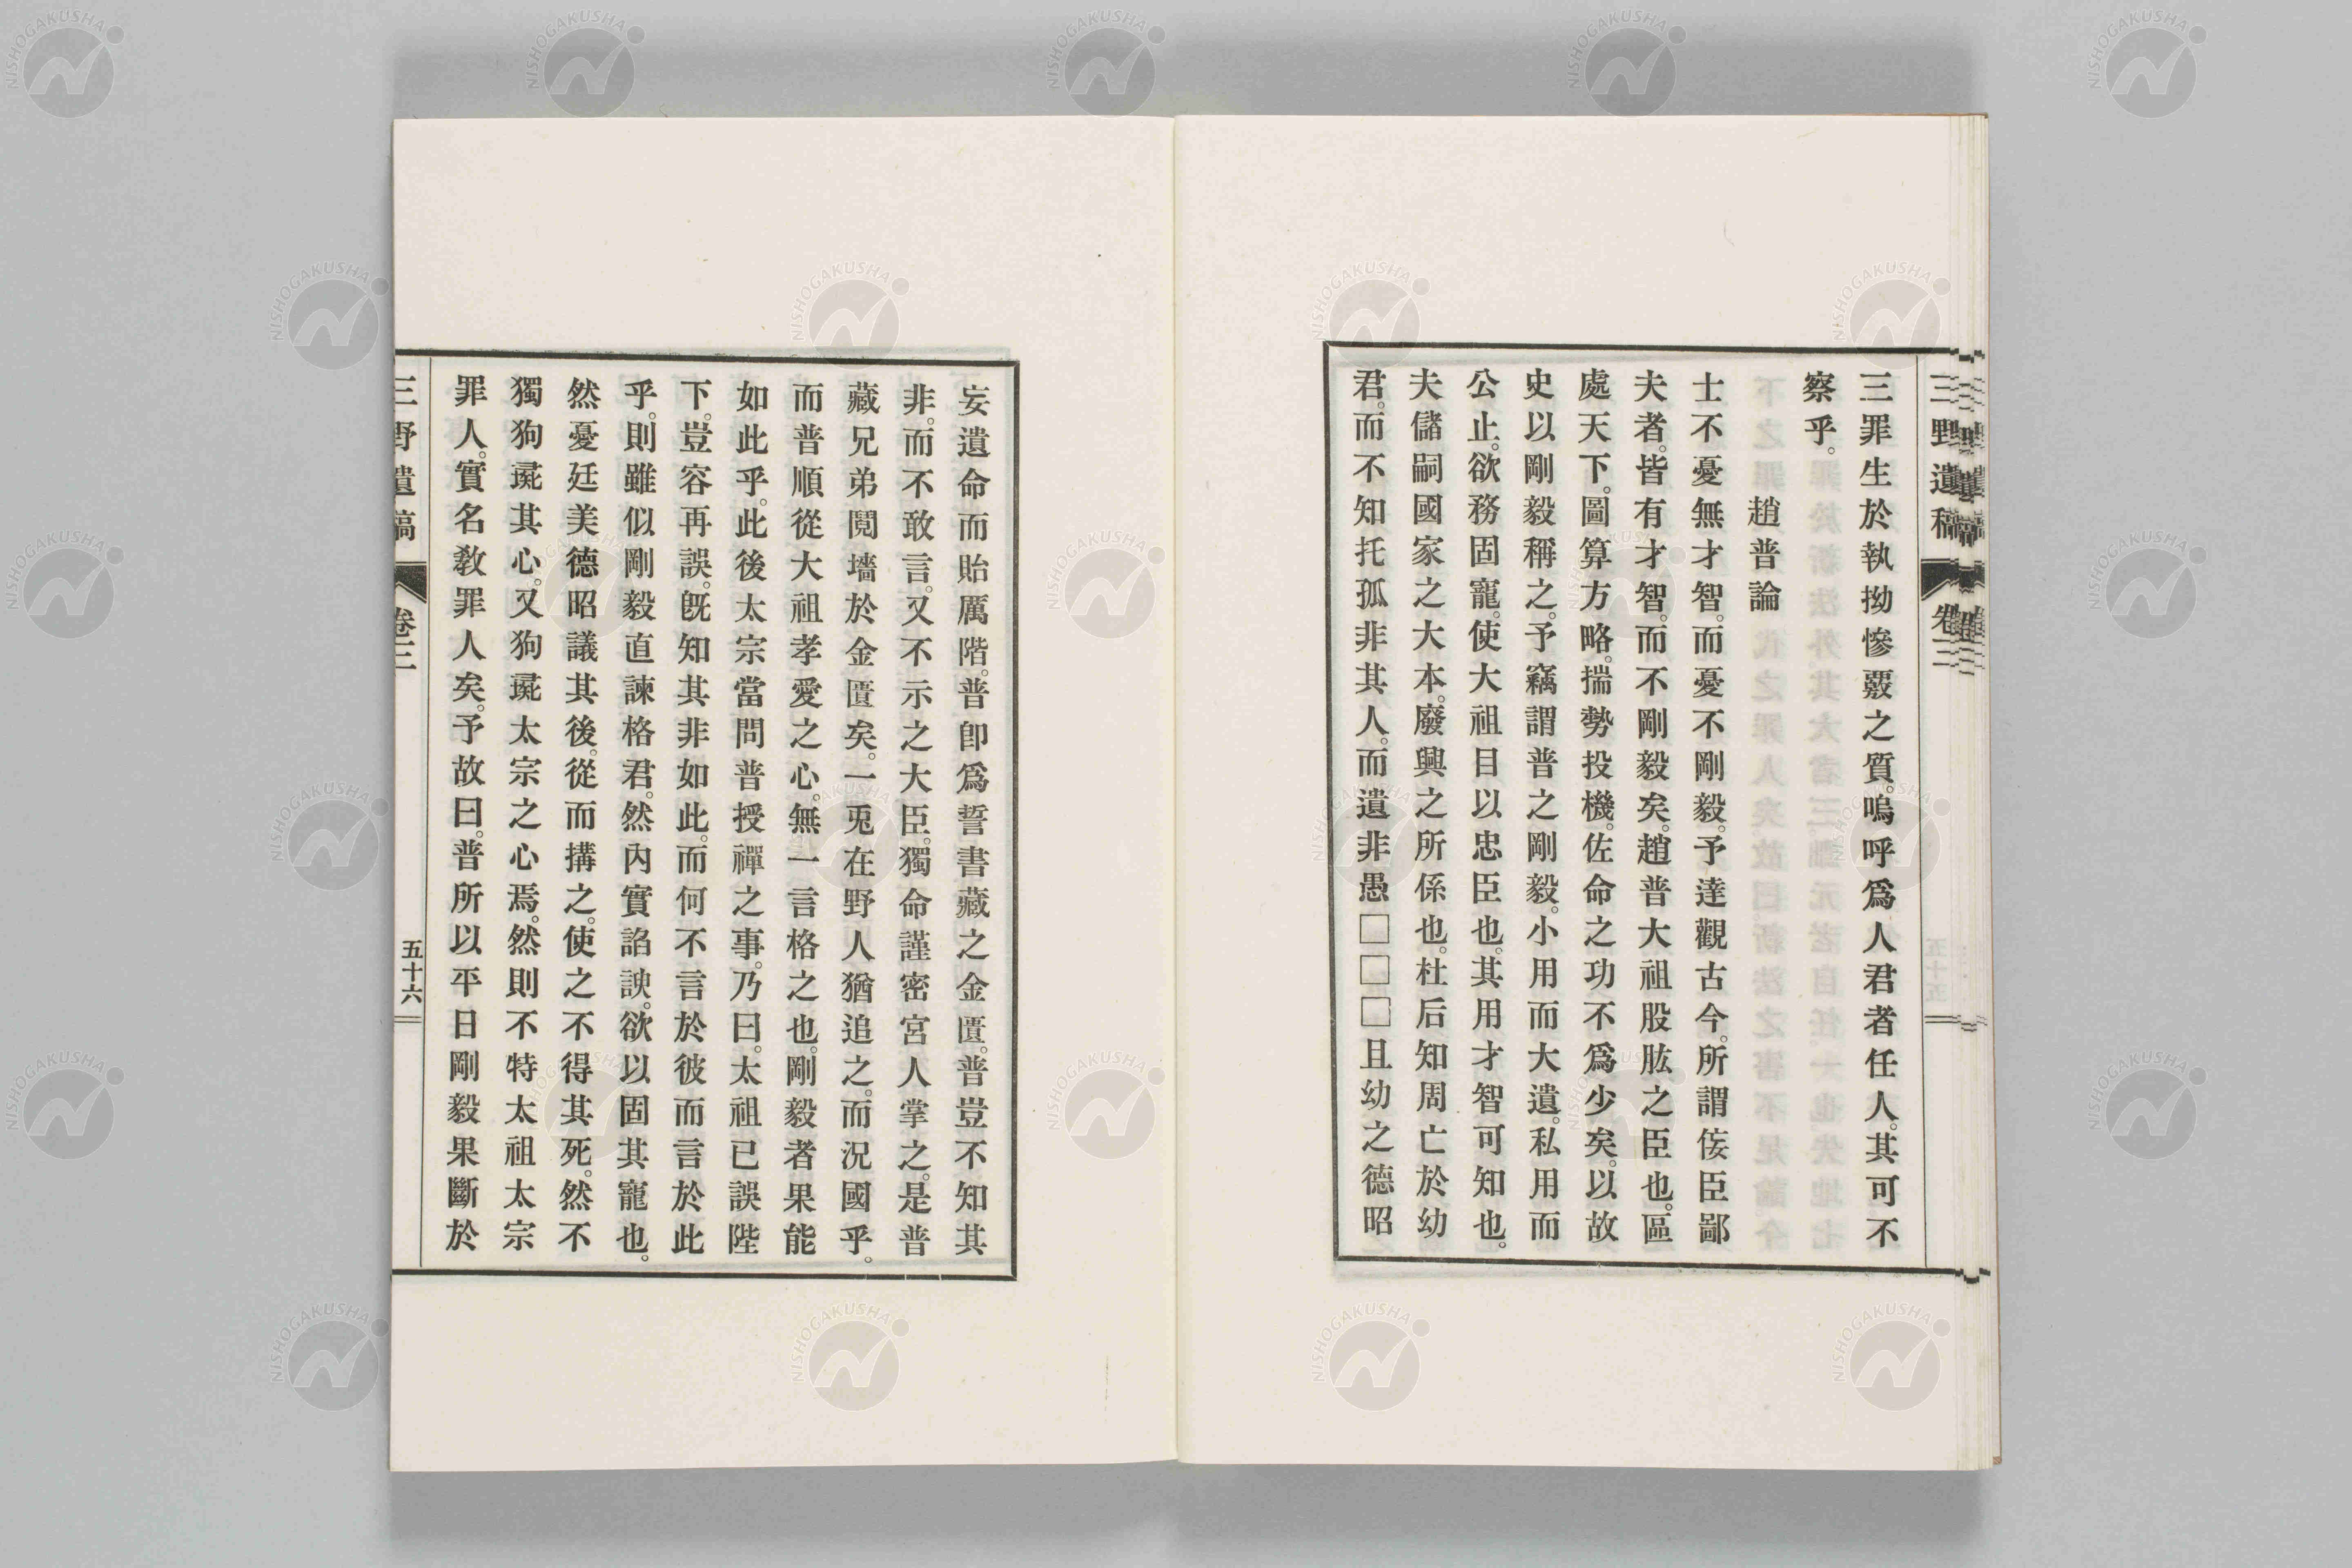 三野遺稿 卷三
三罪生於執拗慘覈之質。嗚呼爲人君者任人。其可不
察乎。
趙普論
士不憂無才智。而憂不剛毅。予達觀古今。所謂佞臣鄙
夫者。皆有才智。而不剛毅矣。趙普大祖股肱之臣也。區
處天下。圖算方略。揣勢投機。佐命之功不爲少矣。以故
史以剛毅稱之。予竊謂普之剛毅。小用而大遺。私用而
公止。欲務固寵。使大祖目以忠臣也。其用才智可知也。
夫儲嗣國家之大本。廢興之所係也。杜后知周亡於幼
君。而不知托孤非其人。而遺非愚□□□且幼之德昭
妄遺命而貽厲階。普卽爲誓書藏之金匱。普豈不知其
非。而不敢言。又不示之大臣。獨命謹密宮人掌之。是普
藏兄弟鬩墻於金匱矣。一兎在野人猶追之。而況國乎。
而普順從大祖孝愛之心。無一言格之也。剛毅者果能
如此乎。此後太宗當問普授禪之事。乃曰。太祖已誤陛
下。豈容再誤。旣知其非如此。而何不言於彼而言於此
乎。則雖似剛毅直諫格君。然內實諂諛。欲以固其寵也。
然憂廷美德昭議其後。從而搆之。使之不得其死。然不
獨狗彘其心。又狗彘太宗之心焉。然則不特太祖太宗
罪人。實名敎罪人矣。予故曰。普所以平日剛毅果斷於
三野遺稿 卷三 五十六
NISHOGAKUSHA